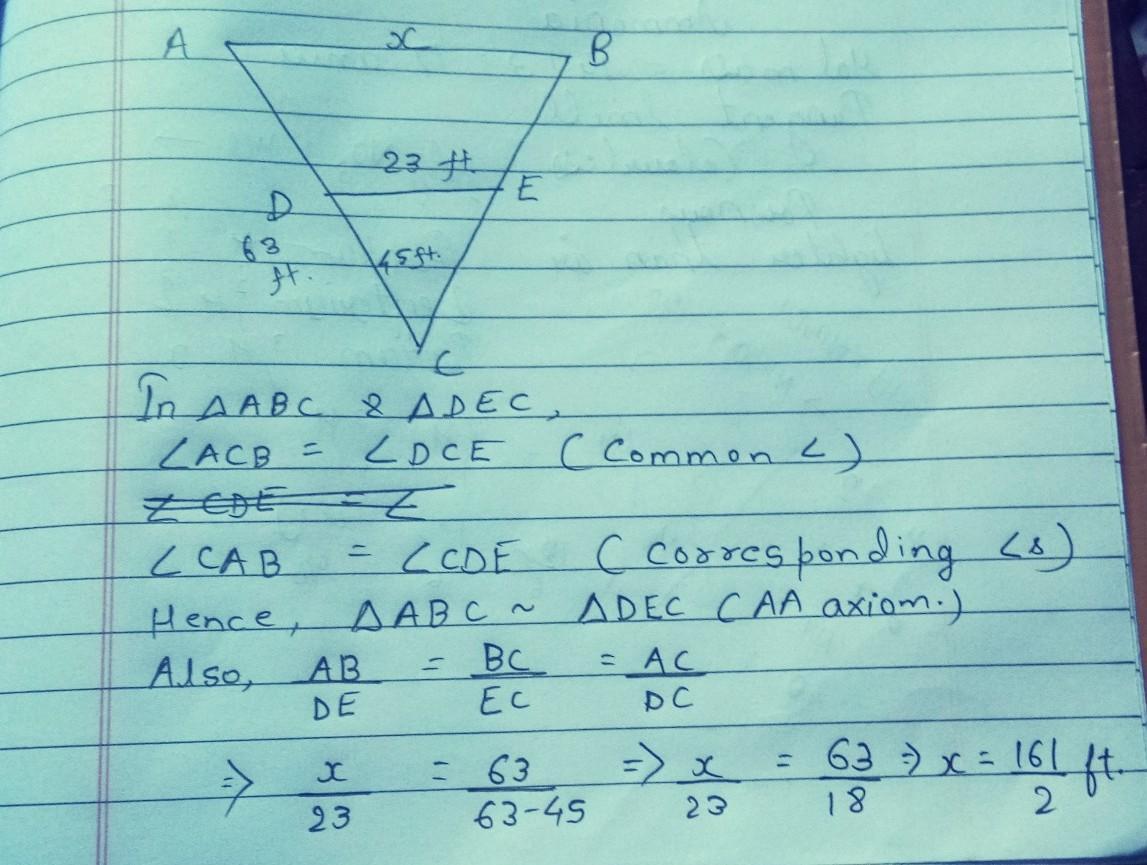 A x B
23 ft.
D E
63 ft.
45ft.
C
In △ABC & △DEC,
∠ACB = ∠DCE (Common ∠)
∠CDE = ∠
∠CAB = ∠CDE (Corresponding ∠s)
Hence, △ABC ~ △DEC (AA axiom.)
Also, AB/DE = BC/EC = AC/DC
⇒ x/23 = 63/63-45 ⇒ x/23 = 63/18 ⇒ x = 161/2 ft.